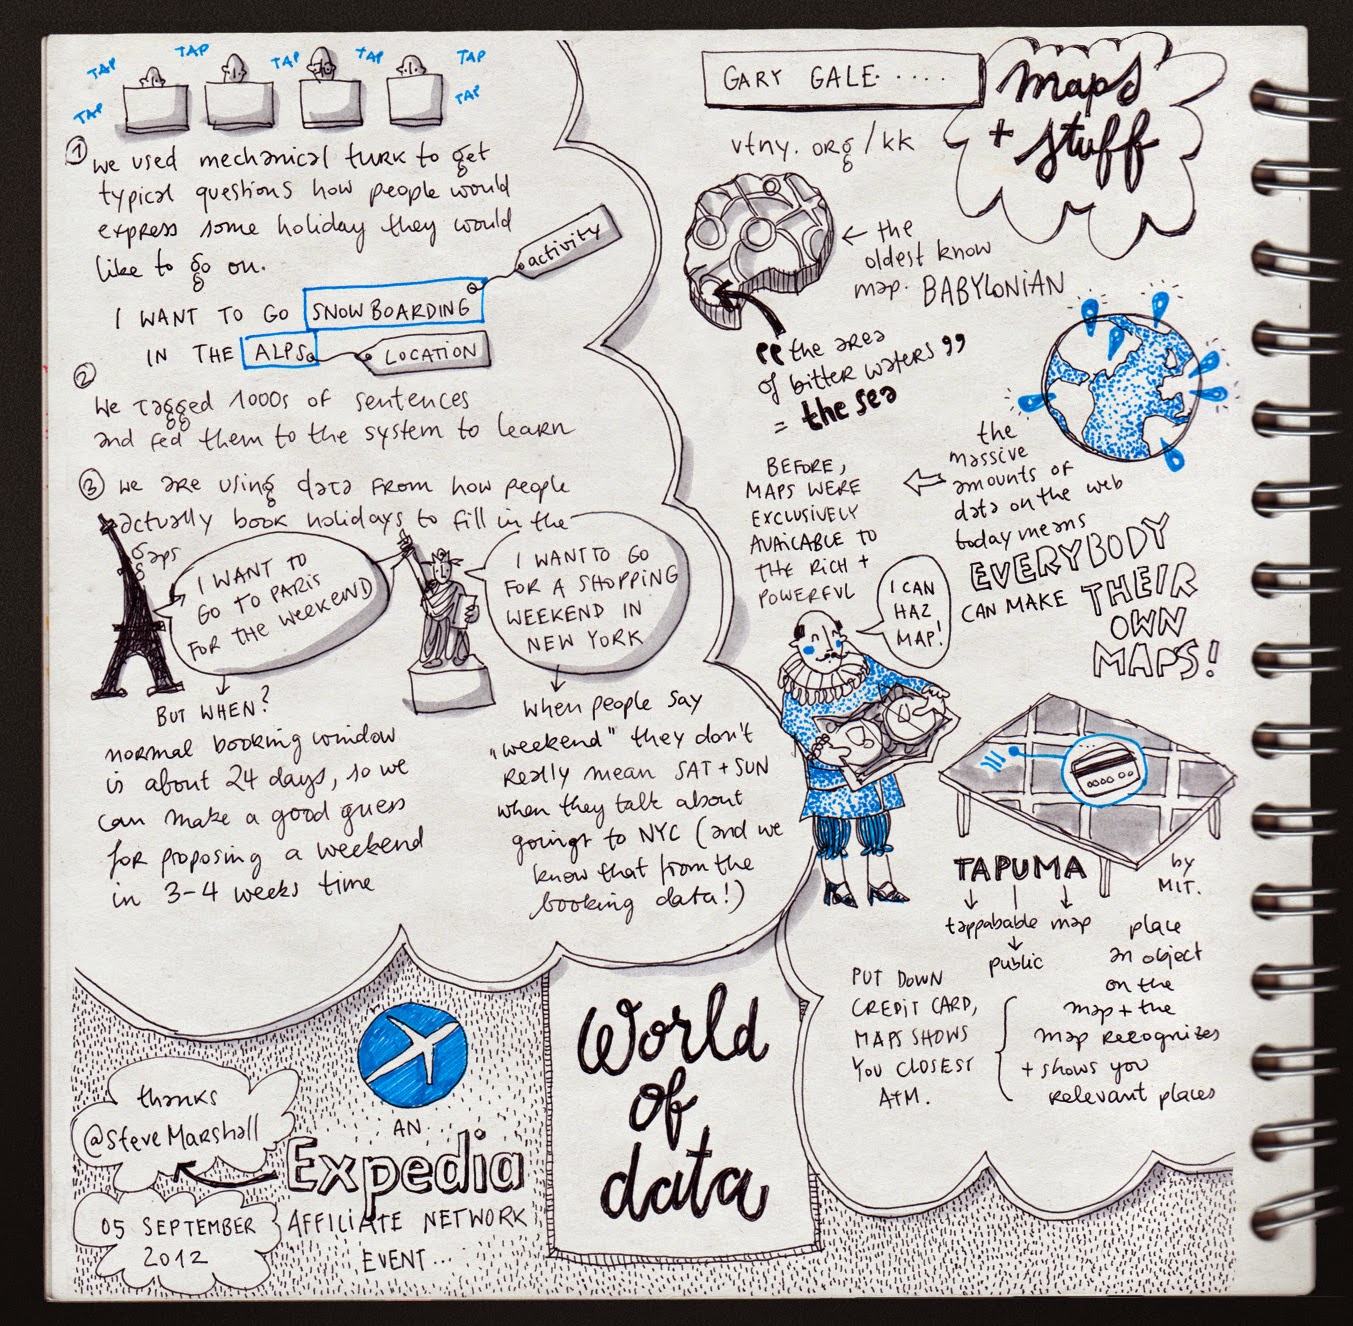 TAP
TAP
TAP
TAP
TAP
TAP
TAP
1
we used mechanical turk to get
typical questions how people would
express some holiday they would
like to go on.
activity
I WANT TO GO SNOWBOARDING
IN THE ALPS
LOCATION
2
We tagged 1000s of sentences
and fed them to the system to learn
3
we are using data from how people
actually book holidays to fill in the
gaps
I WANT TO
GO TO PARIS
FOR THE WEEKEND
BUT WHEN?
normal booking window
is about 24 days, so we
can make a good guess
for proposing a weekend
in 3-4 weeks time
I WANT TO GO
FOR A SHOPPING
WEEKEND IN
NEW YORK
when people say
„weekend" they don't
really mean SAT + SUN
when they talk about
goingt to NYC (and we
know that from the
booking data!)
GARY GALE.....
maps
+ stuff
vtny.org/kk
← the
oldest know
map. BABYLONIAN
"the area
of bitter waters"
= the sea
the
massive
amounts of
data on the web
today means
EVERYBODY
CAN MAKE THEIR
OWN
MAPS!
BEFORE,
MAPS WERE
EXCLUSIVELY
AVAILABLE TO
THE RICH +
POWERFUL
I CAN
HAZ
MAP!
TAPUMA
by
MIT.
tappabable map
public
place
an object
on the
map + the
map recognizes
+ shows you
relevant places
PUT DOWN
CREDIT CARD,
MAPS SHOWS
YOU CLOSEST
ATM.
thanks
@SteveMarshall
05 SEPTEMBER
2012
AN
Expedia
AFFILIATE NETWORK
EVENT...
World
of
data